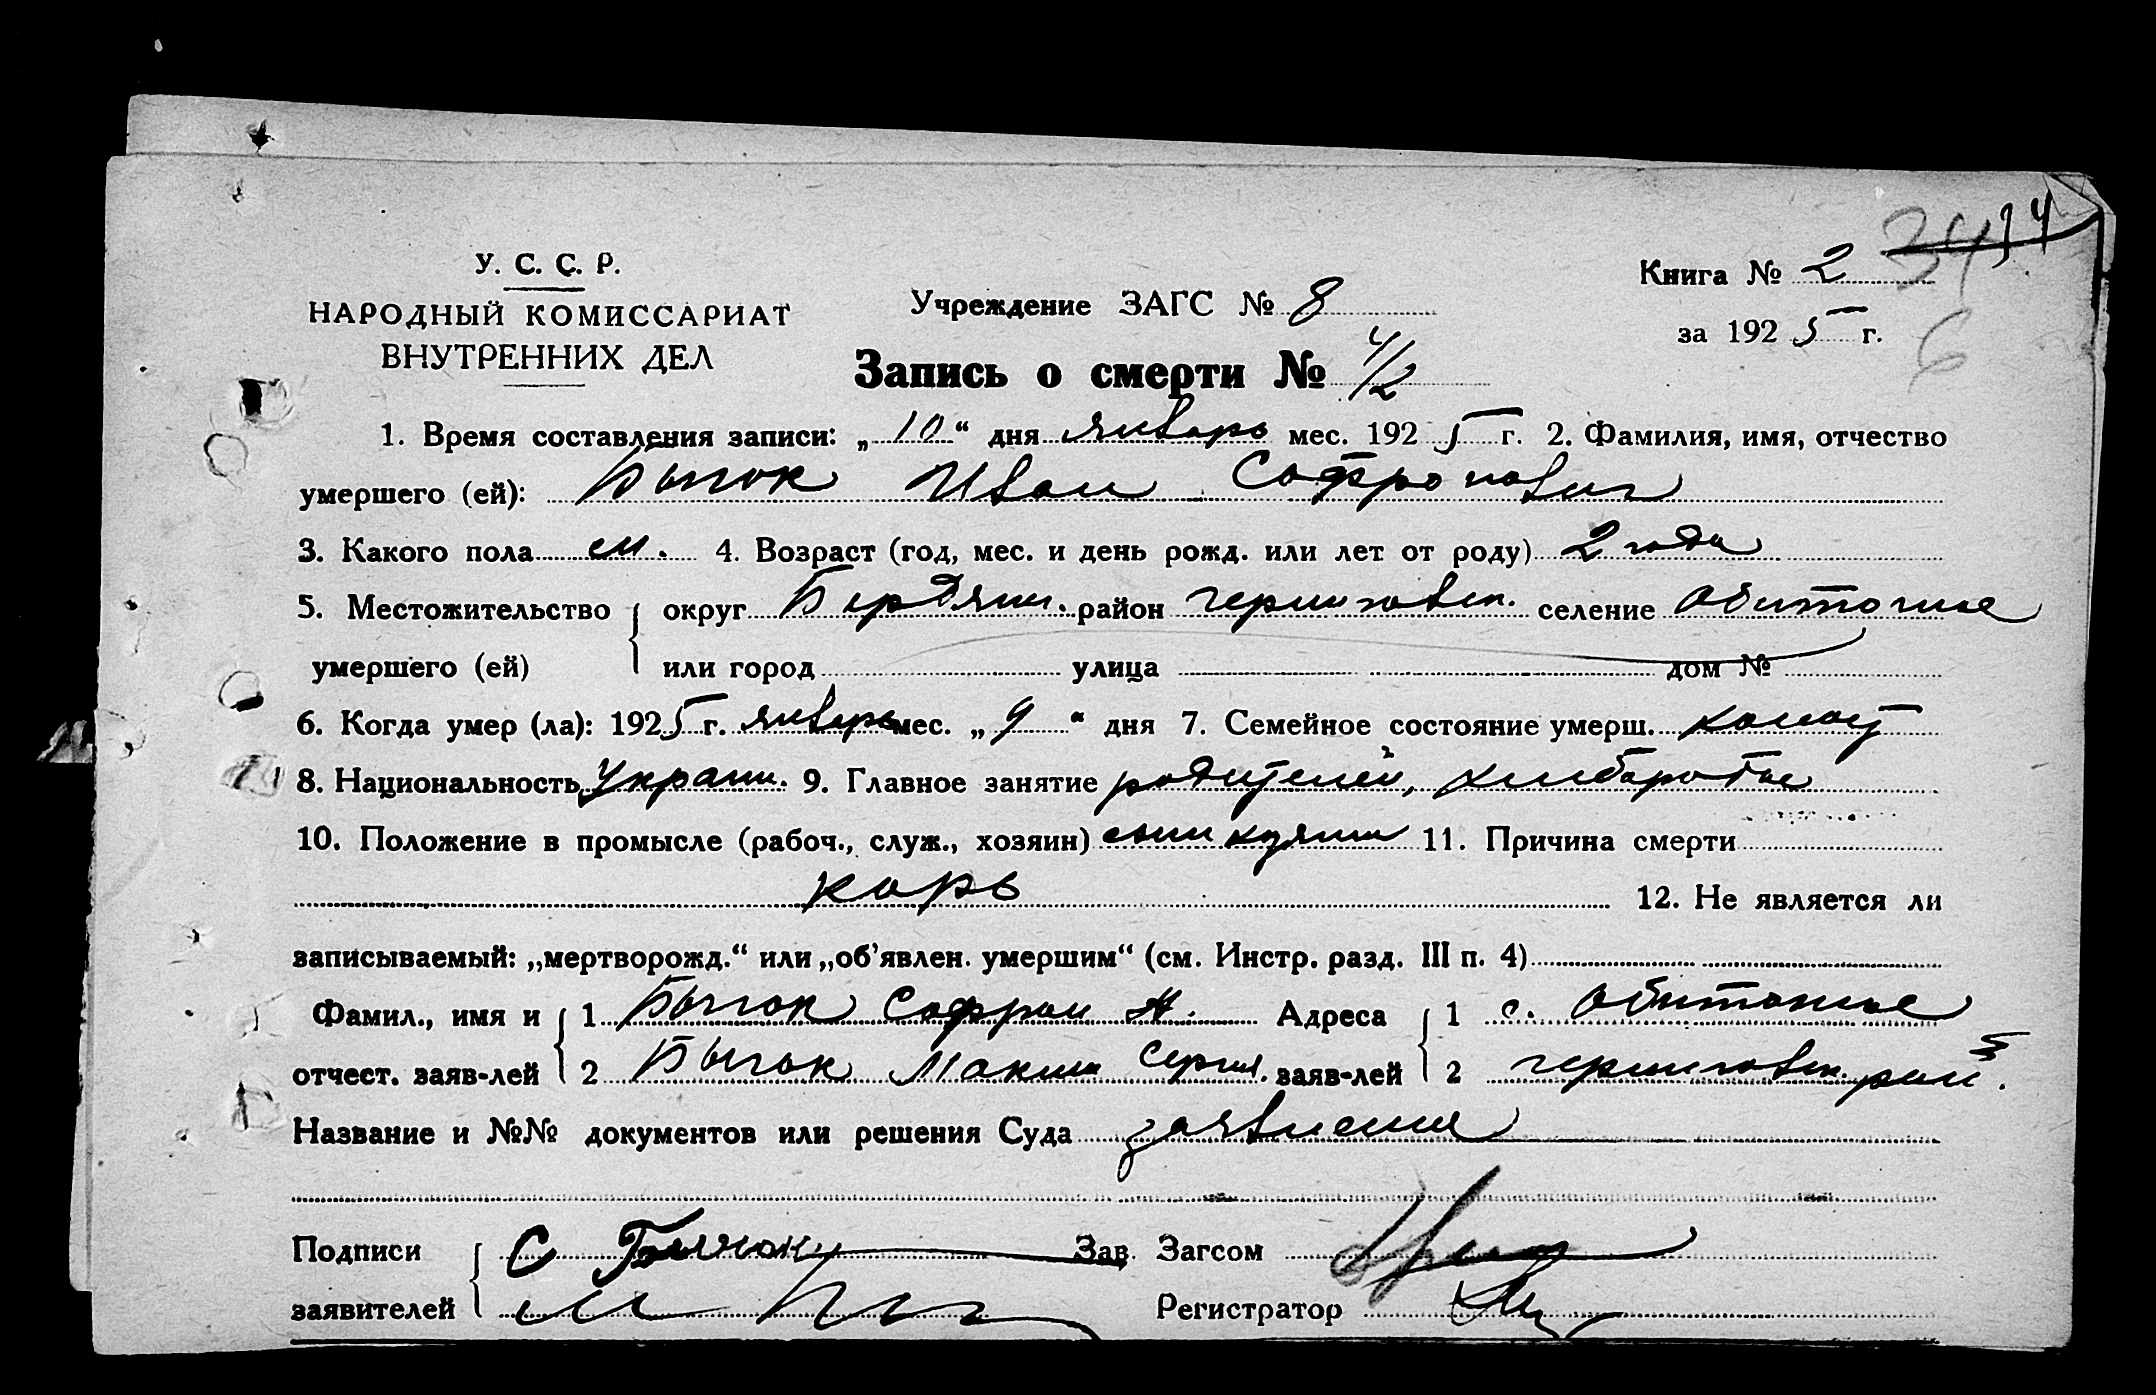 34 14
У. С. С. Р.
НАРОДНЫЙ КОМИССАРИАТ
ВНУТРЕННИХ ДЕЛ
Учреждение ЗАГС № 8
Книга № 2
за 1925 г.
6
Запись о смерти № 4/2
1. Время составления записи: „10“ дня январь мес. 1925 г. 2. Фамилия, имя, отчество
умершего (ей): Бычок Иван Софронович
3. Какого пола м. 4. Возраст (год, мес. и день рожд. или лет от роду) 2 года
5. Местожительство округ Бердянск. район Черниговск. селение Обиточное
умершего (ей) или город улица дом №
6. Когда умер (ла): 1925 г. январь мес. „9“ дня 7. Семейное состояние умерш. холост
8. Национальность Украин. 9. Главное занятие родителей, хлебороб
10. Положение в промысле (рабоч., служ., хозяин) 11. Причина смерти
корь 12. Не является ли
записываемый: „мертворожд.“ или „об’явлен. умершим“ (см. Инстр. разд. III п. 4)
Фамил., имя и 1 Бычок Софрон Н. Адреса 1 с. Обиточное
отчест. заяв-лей 2 Бычок Максим Сергия. заяв-лей 2 Черниговск. рай.
Название и №№ документов или решения Суда заявление
Подписи С Бычок Зав. Загсом
заявителей Регистратор